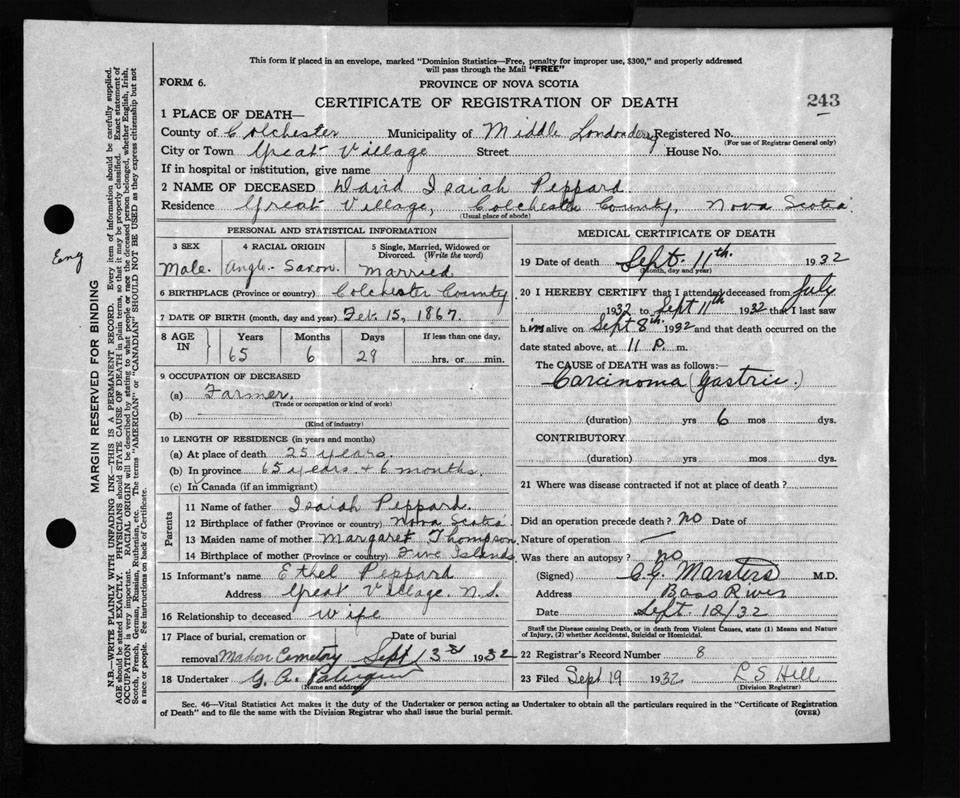 This form if placed in an envelope, marked "Dominion Statistics—Free, penalty for improper use, $300," and properly addressed
will pass through the Mail "FREE"
FORM 6.
PROVINCE OF NOVA SCOTIA
CERTIFICATE OF REGISTRATION OF DEATH
243
1 PLACE OF DEATH—
County of Colchester Municipality of Middle Londonderry Registered No.
(For use of Registrar General only)
City or Town Great Village Street House No.
If in hospital or institution, give name
2 NAME OF DECEASED David Isaiah Peppard
Residence Great Village, Colchester County, Nova Scotia.
(Usual place of abode)
PERSONAL AND STATISTICAL INFORMATION
3 SEX 4 RACIAL ORIGIN 5 Single, Married, Widowed or
Divorced. (Write the word)
Male. Anglo-Saxon. Married
6 BIRTHPLACE (Province or country) Colchester County
7 DATE OF BIRTH (month, day and year) Feb. 15, 1867.
8 AGE IN Years Months Days If less than one day,
65 6 29 hrs. or min.
9 OCCUPATION OF DECEASED
(a) Farmer.
(Trade or occupation or kind of work)
(b)
(Kind of industry)
10 LENGTH OF RESIDENCE (in years and months)
(a) At place of death 25 years.
(b) In province 65 years + 6 months.
(c) In Canada (if an immigrant)
Parents
11 Name of father Isaiah Peppard.
12 Birthplace of father (Province or country) Nova Scotia
13 Maiden name of mother Margaret Thompson
14 Birthplace of mother (Province or country) Five Islands
15 Informant's name Ethel Peppard
Address Great Village. N.S.
16 Relationship to deceased Wife
17 Place of burial, cremation or Date of burial
removal Mahon Cemetery Sept 13 1932
18 Undertaker G. A.
(Name and address)
MEDICAL CERTIFICATE OF DEATH
19 Date of death Sept. 11th. 1932
(Month, day and year)
20 I HEREBY CERTIFY that I attended deceased from July
1932 to Sept 11th 1932 that I last saw
him alive on Sept 8th. 1932 and that death occurred on the
date stated above, at 11 P. m.
The CAUSE of DEATH was as follows:—
Carcinoma (Gastric.)
(duration) yrs 6 mos dys.
CONTRIBUTORY
(duration) yrs. mos. dys.
21 Where was disease contracted if not at place of death?
Did an operation precede death? no Date of
Nature of operation —
Was there an autopsy? no
(Signed) C.G. Marsters M.D.
Address Bass River
Date Sept. 12/32
State the Disease causing Death, or in death from Violent Causes, state (1) Means and Nature
of Injury, (2) whether Accidental, Suicidal or Homicidal.
22 Registrar's Record Number 8
23 Filed Sept 19 1932 L S Hill
(Division Registrar)
Sec. 46—Vital Statistics Act makes it the duty of the Undertaker or person acting as Undertaker to obtain all the particulars required in the "Certificate of Registration
of Death" and to file the same with the Division Registrar who shall issue the burial permit.
(OVER)
Eng
MARGIN RESERVED FOR BINDING
N.B.—WRITE PLAINLY WITH UNFADING INK—THIS IS A PERMANENT RECORD. Every item of information should be carefully supplied.
AGE should be stated EXACTLY. PHYSICIANS should STATE CAUSE OF DEATH in plain terms, so that it may be properly classified. Exact statement of
OCCUPATION is very important. RACIAL ORIGIN will be described by stating to what people or race the deceased person belonged, whether English, Irish,
Scotch, French, German, Russian, Ruthenian, etc. The terms "AMERICAN" or "CANADIAN" SHOULD NOT BE USED as they express citizenship but not
a race or people. See instructions on back of Certificate.